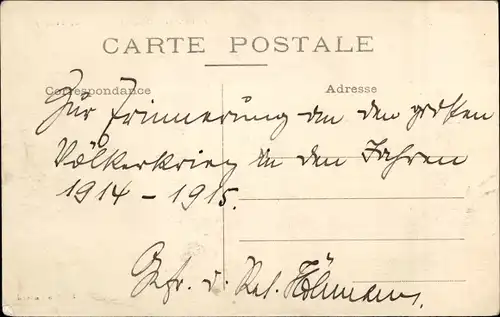 CARTE POSTALE
Correspondance
Adresse
Zur Erinnerung an den großen
Völkerkrieg in den Jahren
1914 – 1915.
Gfr. d. Res.